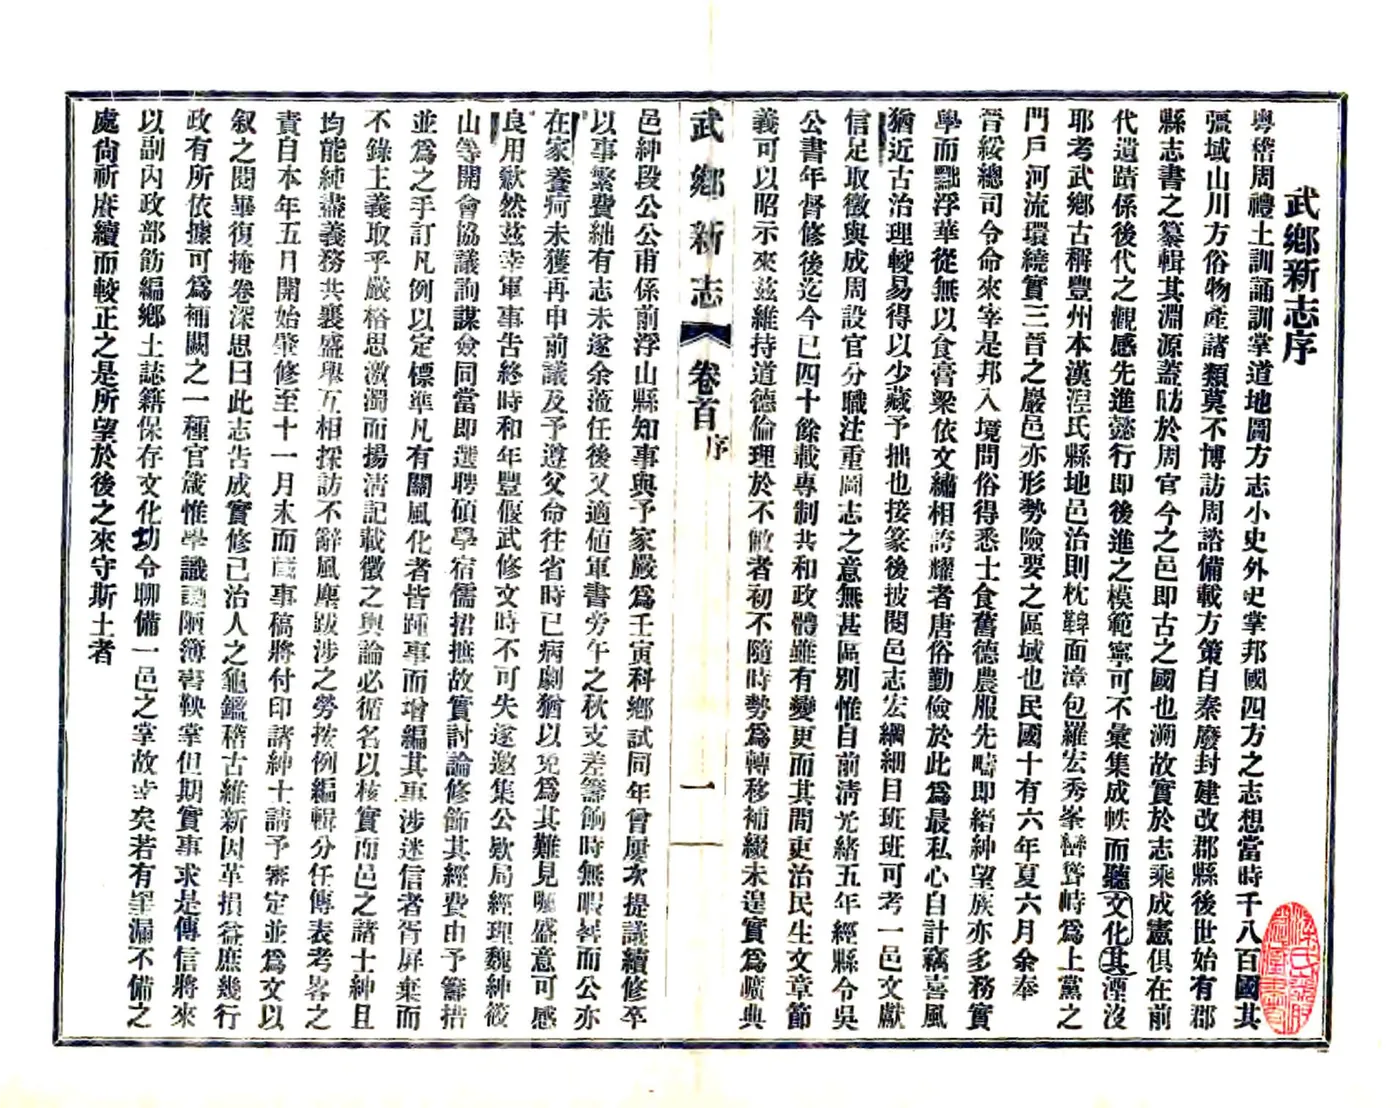 武鄉新志序
粵稽周禮土訓誦訓掌道地圖方志小史外史掌邦國四方之志想當時千八百國其
疆域山川方俗物產諸類莫不博訪周諮備載方策自秦廢封建改郡縣後世始有郡
縣志書之纂輯其淵源蓋昉於周官今之邑即古之國也溯故實於志乘成憲俱在前
代遺蹟係後代之觀感先進懿行即後進之模範寧可不彙集成帙而聽文化其湮沒
耶考武鄉古稱豐州本漢湼氏縣地邑治則枕鞞面漳包羅宏秀峯巒聳峙為上黨之
門戶河流環繞實三晉之嚴邑亦形勢險要之區域也民國十有六年夏六月余奉
晉綏總司令命來宰是邦入境問俗得悉士食舊德農服先疇即縉紳望族亦多務實
學而黜浮華從無以食膏粱依文繡相誇耀者唐俗勤儉於此為最私心自計竊喜風
猶近古治理較易得以少藏予拙也接篆後披閱邑志宏綱細目班班可考一邑文獻
信足取徵與成周設官分職注重圖志之意無甚區別惟自前清光緒五年經縣令吳
公書年督修後迄今已四十餘載專制共和政體雖有變更而其間吏治民生文章節
義可以昭示來茲維持道德倫理於不敝者初不隨時勢為轉移補綴未遑實為曠典
武鄉新志
卷首
序
一
邑紳段公公甫係前浮山縣知事與予家嚴為壬寅科鄉試同年曾屢次提議續修卒
以事繁費絀有志未遂余蒞任後又適值軍書旁午之秋支差籌餉時無暇晷而公亦
在家養疴未獲再申前議及予遵父命往省時已病劇猶以克為其難見囑盛意可感
良用歉然茲幸軍事告終時和年豐偃武修文時不可失遂邀集公欵局經理魏紳筱
山等開會協議詢謀僉同當即選聘碩學宿儒招撫故實討論修飾其經費由予籌措
並為之手訂凡例以定標準凡有關風化者皆踵事而增編其事涉迷信者胥屏棄而
不錄主義取乎嚴格思激濁而揚清記載徵之輿論必循名以核實而邑之諸士紳且
均能純盡義務共襄盛舉互相採訪不辭風塵跋涉之勞按例編輯分任傳表考畧之
責自本年五月開始肇修至十一月末而蕆事稿將付印諸紳士請予審定並為文以
叙之閱畢復掩卷深思曰此志告成實修己治人之龜鑑稽古維新因革損益庶幾行
政有所依據可為補闕之一種官箴惟學識譾陋簿書鞅掌但期實事求是傳信將來
以副內政部飭編鄉土誌籍保存文化功令聊備一邑之掌故幸矣若有罣漏不備之
處尙祈賡續而較正之是所望於後之來守斯土者